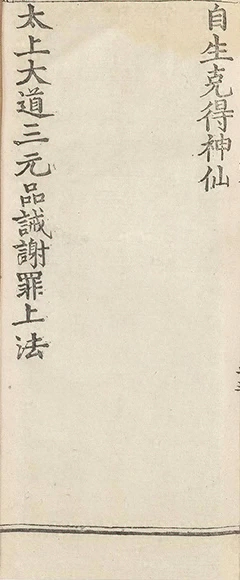 自生克得神仙
太上大道三元品誡謝罪上法